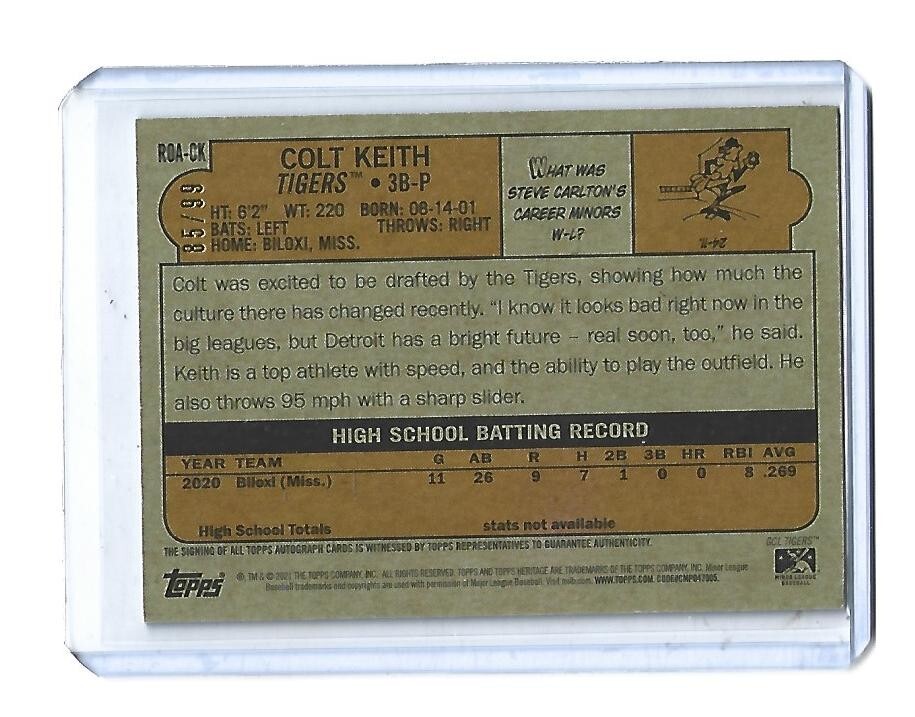 ROA-CK
85/99
COLT KEITH
TIGERS™ • 3B-P
HT: 6'2" WT: 220 BORN: 08-14-01
BATS: LEFT THROWS: RIGHT
HOME: BILOXI, MISS.
WHAT WAS
STEVE CARLTON'S
CAREER MINORS
W-L?
24-11.
Colt was excited to be drafted by the Tigers, showing how much the
culture there has changed recently. "I know it looks bad right now in the
big leagues, but Detroit has a bright future – real soon, too," he said.
Keith is a top athlete with speed, and the ability to play the outfield. He
also throws 95 mph with a sharp slider.
HIGH SCHOOL BATTING RECORD
YEAR TEAM G AB R H 2B 3B HR RBI AVG
2020 Biloxi (Miss.) 11 26 9 7 1 0 0 8 .269
High School Totals stats not available
THE SIGNING OF ALL TOPPS AUTOGRAPH CARDS IS WITNESSED BY TOPPS REPRESENTATIVES TO GUARANTEE AUTHENTICITY.
GCL TIGERS™
topps
®, TM & © 2021 THE TOPPS COMPANY, INC. ALL RIGHTS RESERVED. TOPPS AND TOPPS HERITAGE ARE TRADEMARKS OF THE TOPPS COMPANY, INC. Minor League
Baseball trademarks and copyrights are used with permission of Major League Baseball. Visit milb.com. WWW.TOPPS.COM. CODE#CMP047005.
MINOR LEAGUE
BASEBALL